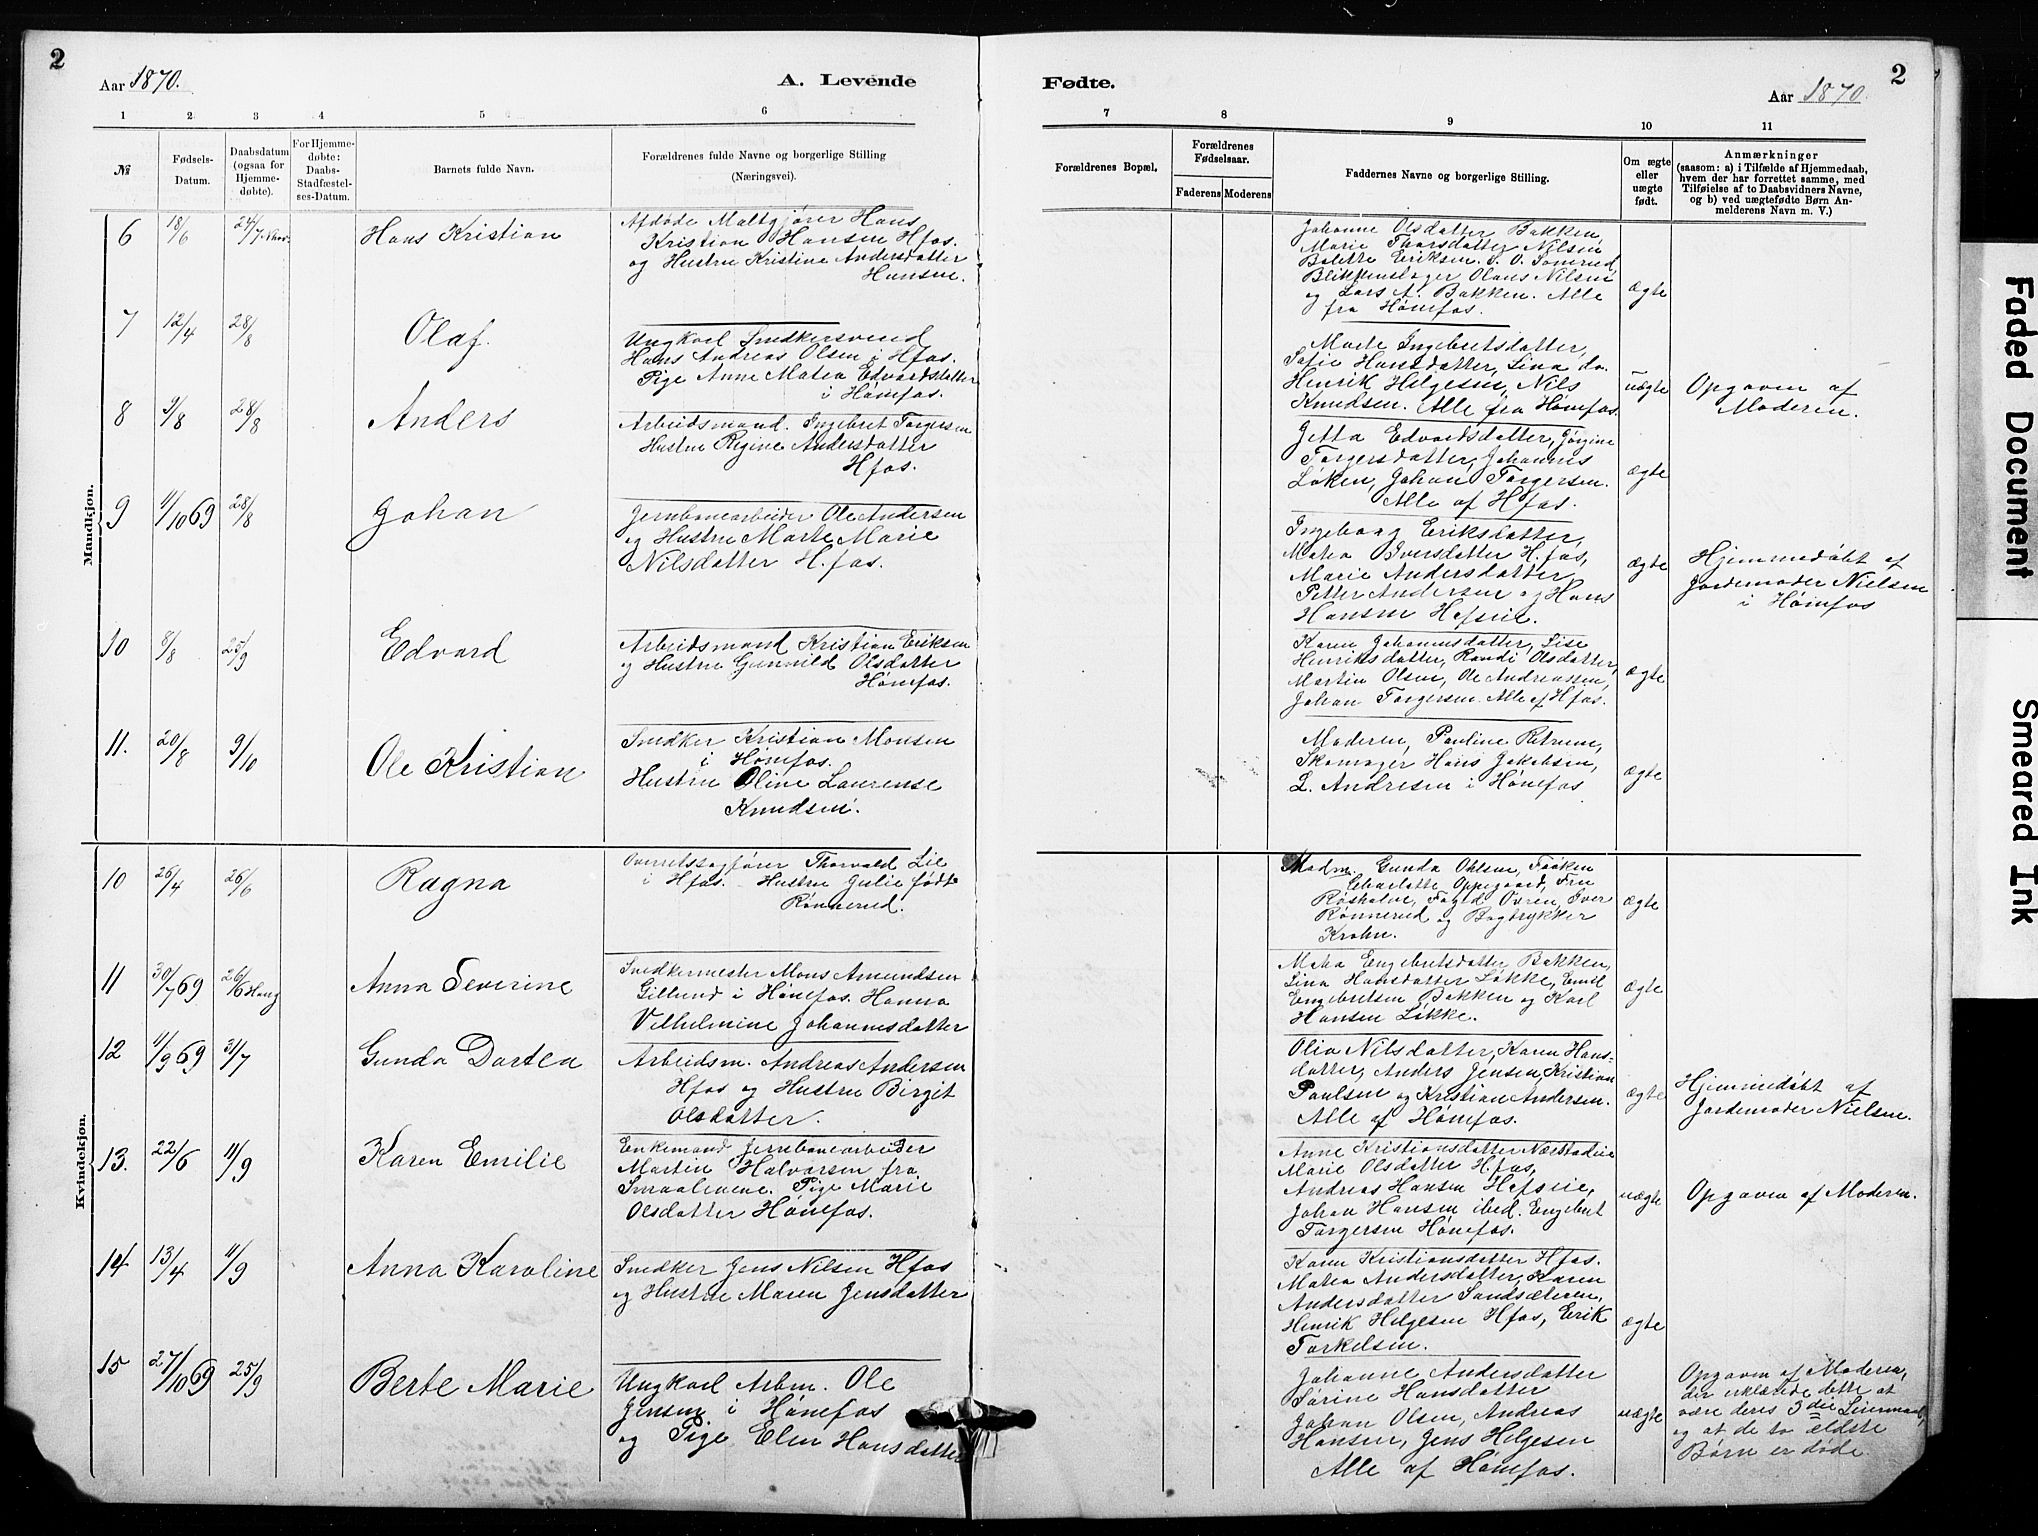 2
Aar 1870.
A. Levende
1 2 3 4 5 6
№
Fødsels-
Datum.
Daabsdatum
(ogsaa for
Hjemme-
døbte).
For Hjemme-
døbte:
Daabs-
Stadfæstel-
ses-Datum.
Barnets fulde Navn.
Forældrenes fulde Navne og borgerlige Stilling
(Næringsvei).
Mandkjøn.
6 18/6 24/7 Hans Kristian
Afdøde Maltgjører Hans
Kristian Hansen Hfos.
og Hustru Kristine Andersdatter
Hansen.
7 12/4 28/8 Olaf.
Ungkarl Snedkersvend
Hans Andreas Olsen i Hfos.
Pige Anne Matea Edvardsdatter
i Hønefos.
8 9/8 28/8 Anders
Arbeidsmand. Ingebret Torgersen
Hustru Regine Andersdatter
Hfos.
9 11/10 69 28/8 Johan
Jernbanearbeider Ole Andersen
og Hustru Marte Marie
Nilsdatter H.fos.
10 8/8 25/9 Edvard
Arbeidsmand Kristian Eriksen
og Hustru Gunvild Olsdatter
Hønefos.
11. 20/8 9/10 Ole Kristian
Snedker Kristian Monsen
i Hønefos.
Hustru Oline Laurense
Knudsen.
Kvindekjøn.
10 26/4 26/6 Ragna
Overretssagfører Thorvald Lie
i Hfos. Hustru Julie født
Rønnerud.
11 30/7 69 26/6 Haug Anna Severine
Snedkermester Mons Amundsen
Gillund i Hønefos. Hanna
Vilhelmine Johannesdatter
12 11/9 69 31/7 Gunda Dortea
Arbeidsm. Andreas Andersen
Hfos og Hustru Birgit
Olsdatter.
13. 22/6 11/9 Karen Emilie
Enkemand Jernbanearbeider
Martin Halvorsen fra
Smaalenene. Pige Marie
Olsdatter Hønefos.
14 13/4 11/9 Anna Karoline
Snedker Jens Nilsen Hfos
og Hustru Maren Jensdatter
15 27/10 69 25/9 Berte Marie
Ungkarl Arbm. Ole
Jensen i Hønefos
og Pige Elen Hansdatter
Fødte.
2
Aar 1870.
7 8 9 10 11
Forældrenes Bopæl.
Forældrenes
Fødselsaar.
Faderens Moderens
Faddernes Navne og borgerlige Stilling.
Om ægte
eller
uægte
født.
Anmærkninger
(saasom: a) i Tilfælde af Hjemmedaab,
hvem der har forrettet samme, med
Tilføielse af to Daabsvidners Navne,
og b) ved uægtefødte Børn An-
melderens Navn m. V.)
Johanne Olsdatter Bakken,
Marie Thorsdatter Nilsen
Bolette Eriksen. S. O. Somrud,
Blikkenslager Olaus Nilsen
og Lars A. Bakken. Alle
fra Hønefos.
ægte
Marte Ingebretsdatter,
Sofie Hansdatter, Lina do.
Henrik Helgesen, Nils
Knudsen. Alle fra Hønefos.
uægte
Opgaven af
Moderen.
Jetta Edvardsdatter, Jørgine
Torgersdatter, Johannes
Løken, Johan Torgersen.
Alle af Hfos.
ægte
Ingeborg Eriksdatter,
Matea Iversdatter H.fos,
Marie Andersdatter,
Petter Andersen og Hans
Hansen Hofseie.
ægte
Hjemmedøbt af
Jordemoder Nielsen
i Hønefos
Karen Johannesdatter, Lise
Henriksdatter, Randi Olsdatter,
Martin Olsen, Ole Andreassen,
Johan Torgersen. Alle af Hfos.
ægte
Moderen, Pauline Petersen,
Skomager Hans Jakobsen,
L. Andresen i Hønefos
ægte
Madm. Gunda Ohlsen, Frøken
Charlotte Oppegaard, Fru
Røsholm, Foged Ovren, Iver
Rønnerud og Bogtrykker
Krohn.
ægte
Matea Engebretsdatter Bakken,
Lina Hansdatter Løkke, Emil
Engebretsen Bakken og Karl
Hansen Løkke.
ægte
Olia Nilsdatter, Karen Hans-
datter, Anders Jensen, Kristian
Paulsen og Kristian Andersen.
Alle af Hønefos.
ægte
Hjemmedøbt af
Jordemoder Nielsen.
Anne Kristiansdatter Næsstadeie
Marie Olsdatter H.fos,
Andreas Hansen Hofseie,
Johan Hansen ibid. Engebret
Torgersen Hønefos.
uægte
Opgaven af Moderen.
Karen Kristiansdatter Hfos.
Matea Andersdatter, Karen
Andersdatter Sandsæteren,
Henrik Helgesen Hfos, Erik
Torkelsen.
ægte
Johanne Andersdatter
Sørine Hansdatter
Johan Olsen, Andreas
Hansen, Jens Helgesen
Alle af Hønefos.
uægte
Opgaven af Moderen,
der erklærede dette at
være deres 3die Leiermaal,
og at de to ældste
Børn er døde
Faded Document
Smeared Ink